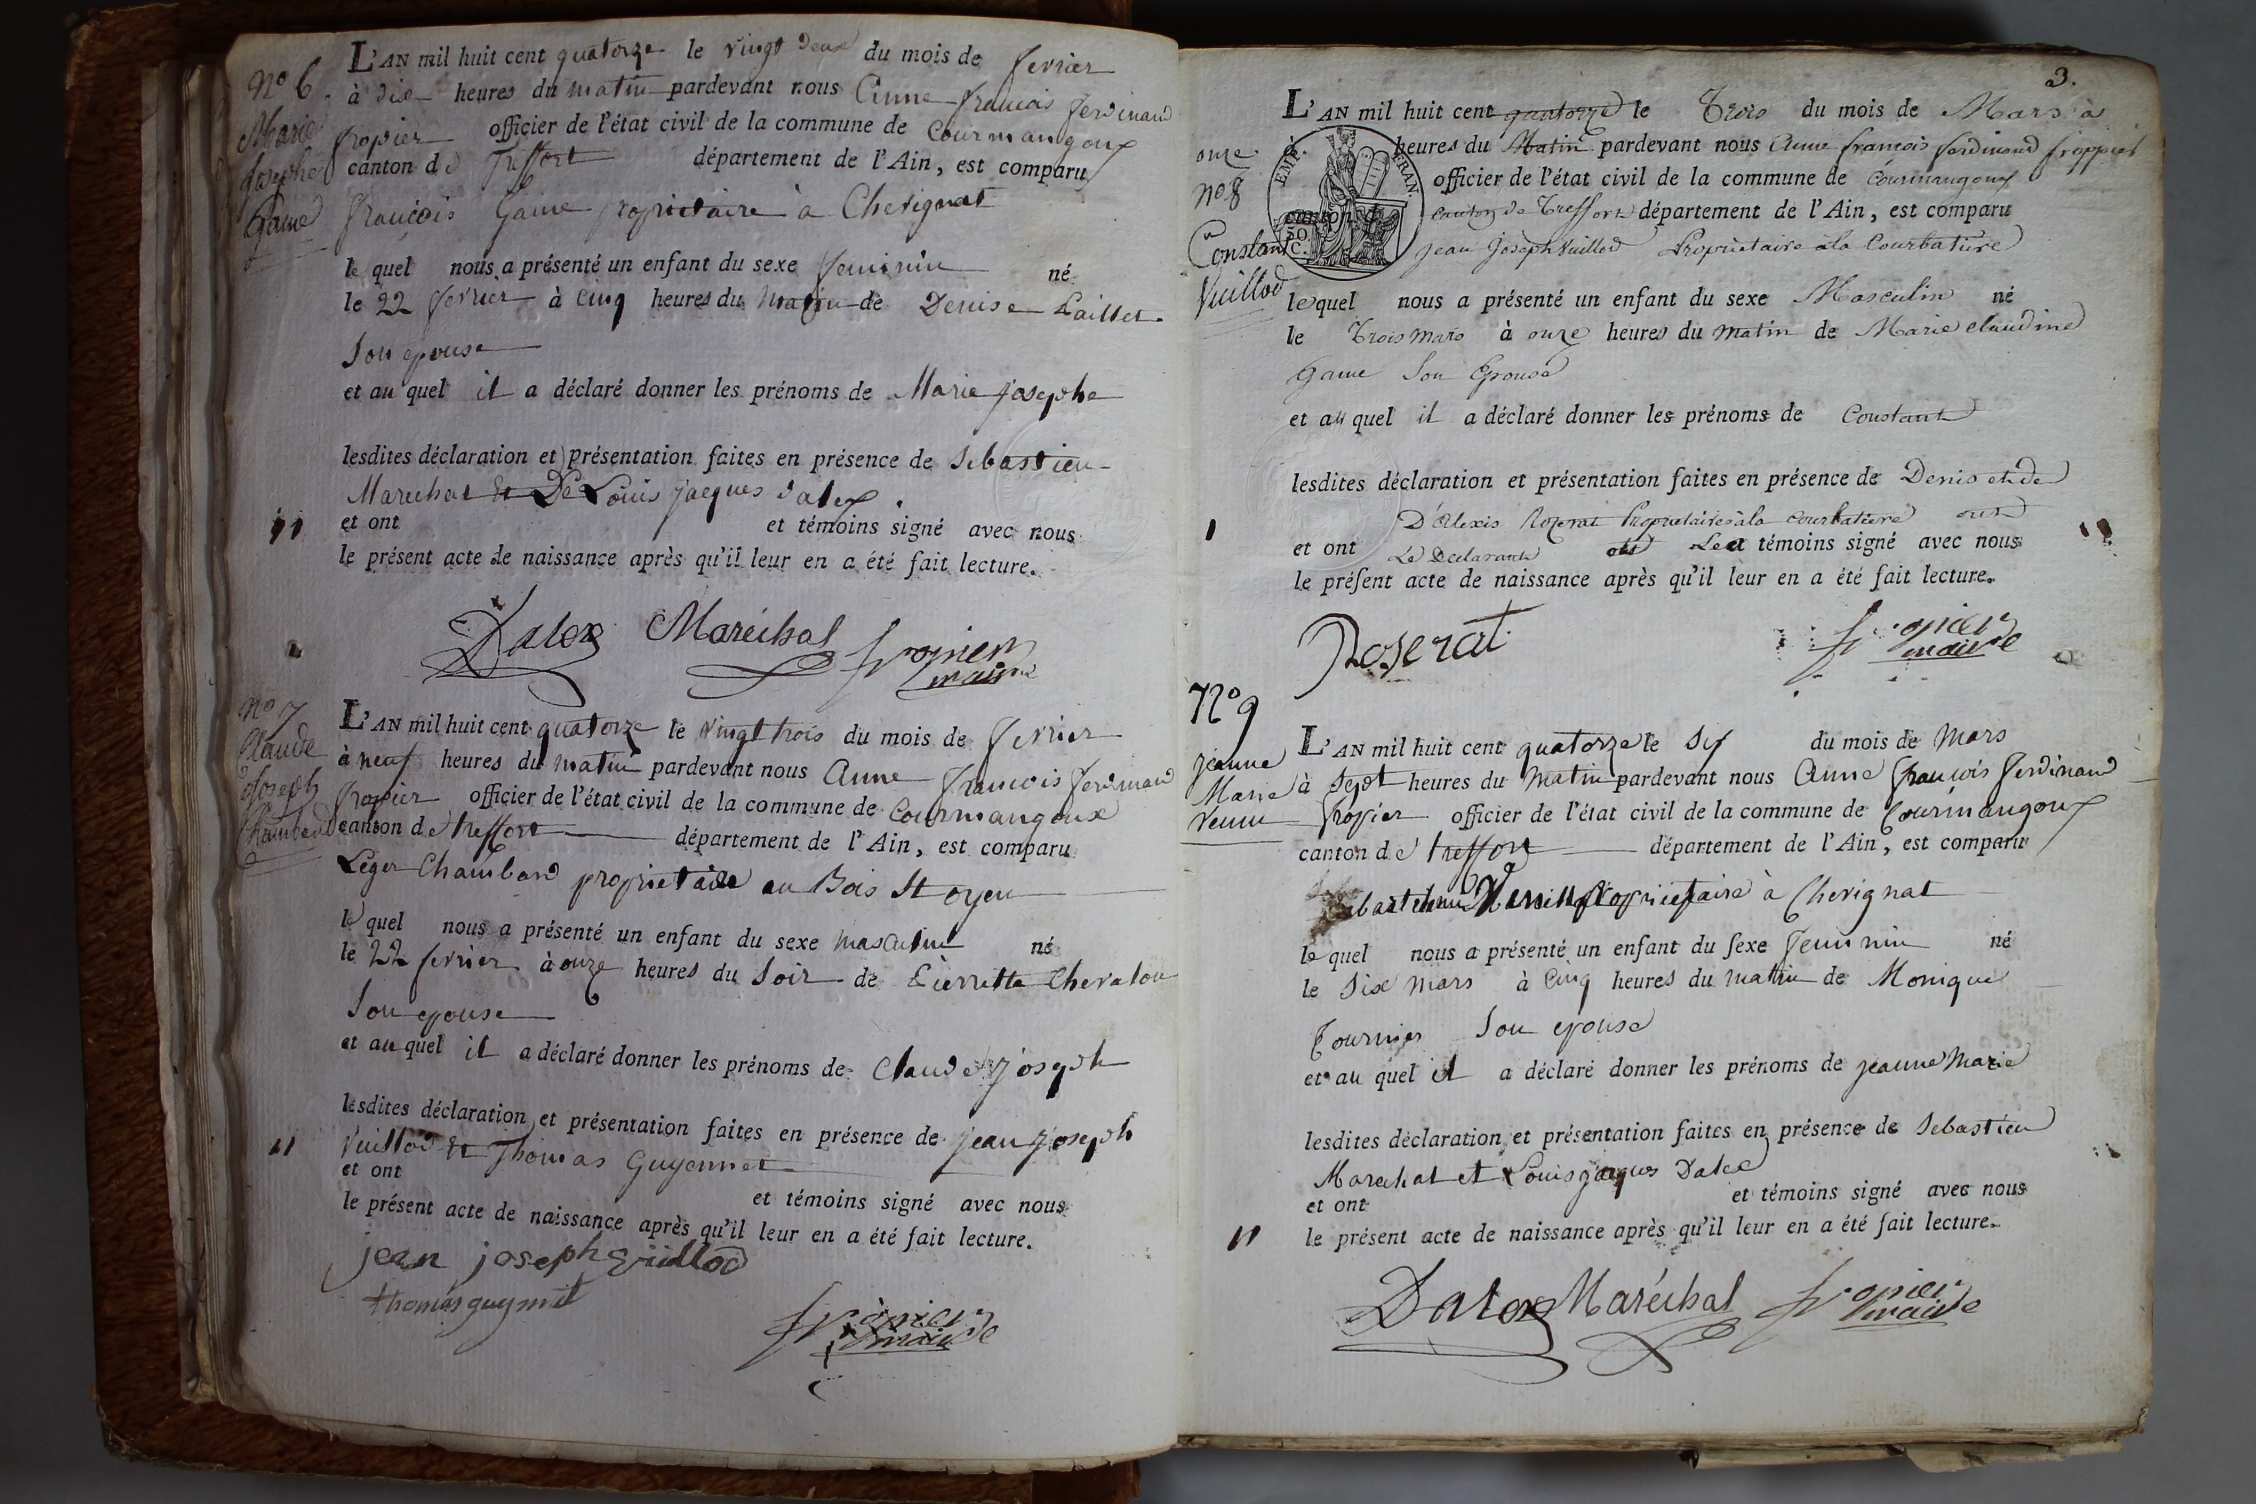 No 6.
Marie
Josephe
Game
L'AN mil huit cent quatorze le vingt deux du mois de fevrier
à dix heures du matin pardevant nous Anne françois ferdinand
fropier officier de l'état civil de la commune de Courmangoux
canton de Treffort département de l'Ain, est comparu
françois Game proprietaire à Chevignat
le quel nous a présenté un enfant du sexe feminin né
le 22 fevrier à cinq heures du matin de Denise Paillet
Son epouse
et au quel il a déclaré donner les prénoms de Marie josephe
lesdites déclaration et présentation faites en présence de Sebastien
Marechal Et De Louis jacques dalex.
et ont et témoins signé avec nous
le présent acte de naissance après qu'il leur en a été fait lecture.
Dalex Maréchal fropier
maire
No 7
Claude
Joseph
Chambard
L'AN mil huit cent quatorze le vingt trois du mois de fevrier
à neuf heures du matin pardevant nous Anne françois ferdinand
fropier officier de l'état civil de la commune de Courmangoux
canton de treffort département de l'Ain, est comparu
Léger Chambard proprietaire au Bois
le quel nous a présenté un enfant du sexe masculin né
le 22 fevrier à onze heures du Soir de Pierrette Chevalon
Son epouse
et au quel il a déclaré donner les prénoms de Claude joseph
lesdites déclaration et présentation faites en présence de jean joseph
Vuillod Et Thomas Guyennet
et ont et témoins signé avec nous
le présent acte de naissance après qu'il leur en a été fait lecture.
jean joseph vuillod
thomas guynnet
fropier
maire
3.
L'AN mil huit cent quatorze le Trois du mois de Mars à
onze à heures du Matin pardevant nous Anne françois ferdinand froppier
No 8
Constant
Vuillod
EMP. FRAN.
50 C.
officier de l'état civil de la commune de Courmangoux
canton d Canton de Treffort département de l'Ain, est comparu
Jean Joseph Vuillod Proprietaire à la Courbatiere
le quel nous a présenté un enfant du sexe Masculin né
le Trois mars à onze heures du matin de Marie claudine
Game Son Epouse
et au quel il a déclaré donner les prénoms de Constant
lesdites déclaration et présentation faites en présence de Denis et de
D'Alexis Rozerat Proprietaires à la Courbatiere ont
et ont Le Declarant et Les témoins signé avec nous
le présent acte de naissance après qu'il leur en a été fait lecture.
Roserat fropier
maire
No 9
jeanne
Marie
L'AN mil huit cent quatorze le Six du mois de Mars
à Sept heures du Matin pardevant nous Anne françois ferdinand
fropier officier de l'état civil de la commune de Courmangoux
canton de treffort département de l'Ain, est comparu
proprietaire à Chevignat
le quel nous a présenté un enfant du sexe feminin né
le Six mars à Cinq heures du matin de Monique
Fournier Son epouse
et au quel il a déclaré donner les prénoms de jeanne Marie
lesdites déclaration et présentation faites en présence de Sebastien
Marechal et Louis jacques Dalex
et ont et témoins signé avec nous
le présent acte de naissance après qu'il leur en a été fait lecture.
Dalex Maréchal fropier
maire